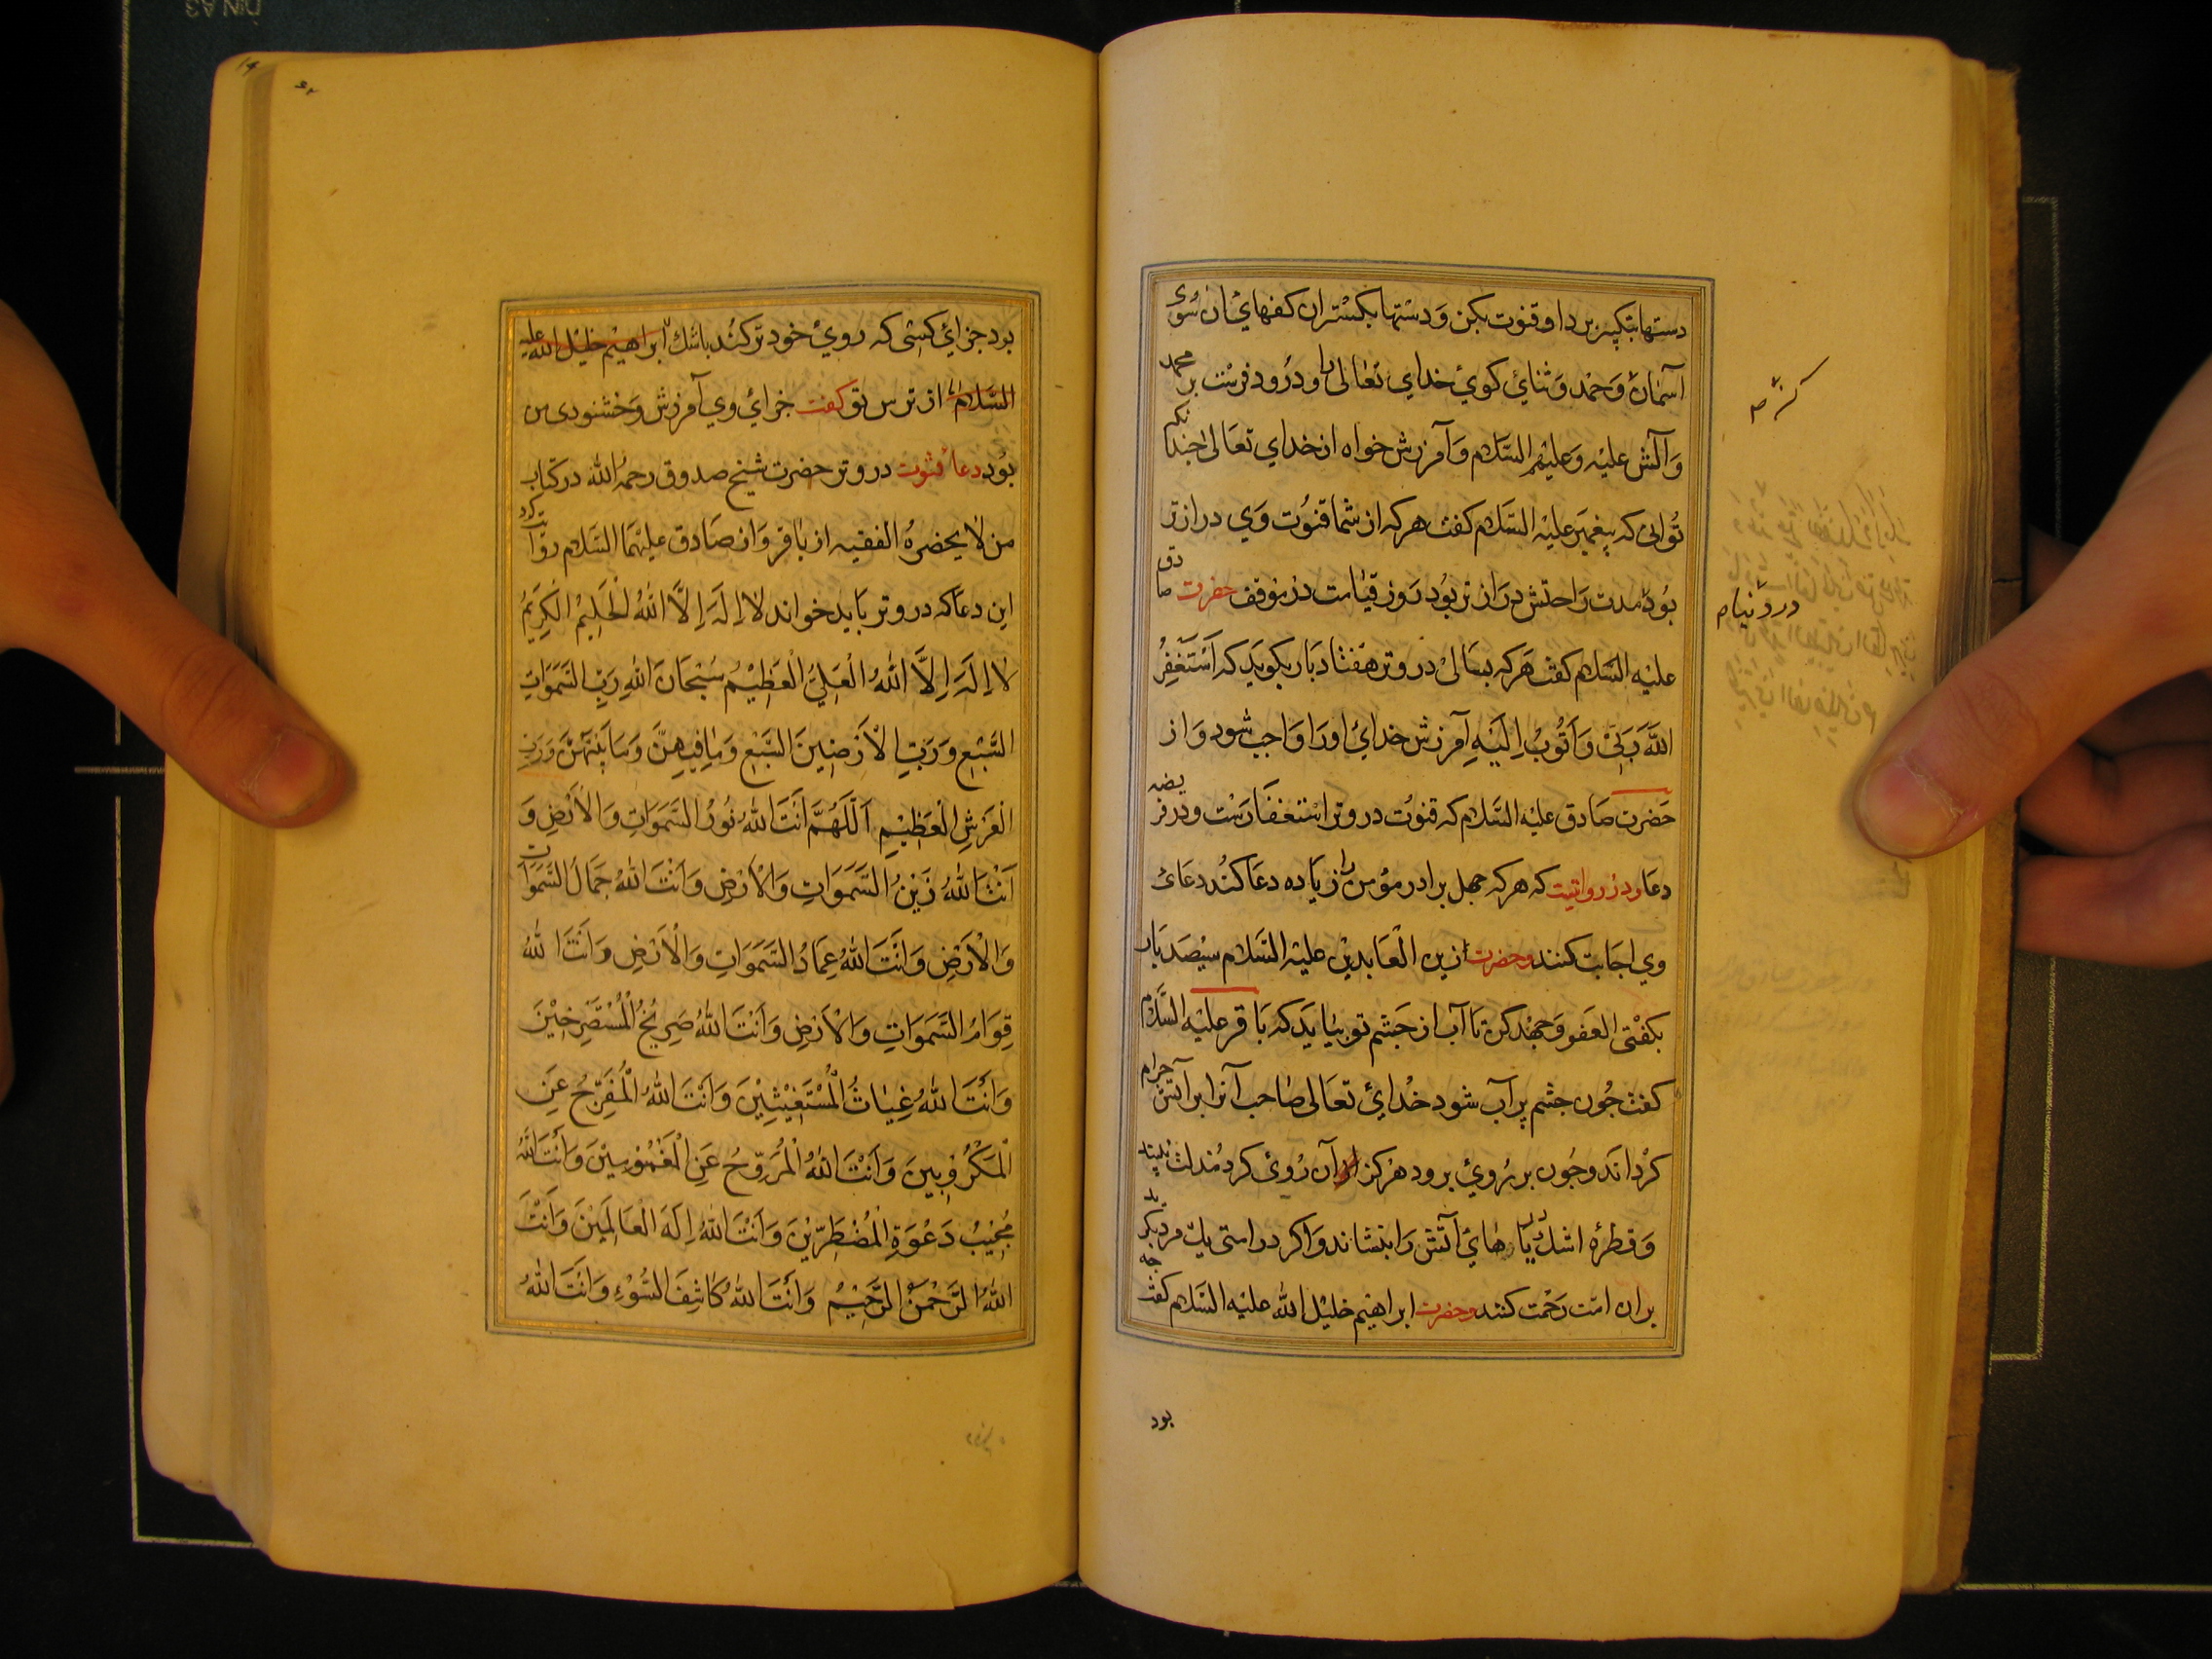 دستها بتکبیر بردار و قنوت بکن و دستها بکستران کفهای ان سوی
آسمان و حمد و ثنای کوی خدای تعالی را و درود فرست بر محمد
و آلش علیه و علیهم السلام و آمرزش خواه از خدای تعالی جندانکه
توانی که پیغمبر علیه السلام کفت هر که از شما قنوت وی درازتر
بود مدت راحتش درازتر بود روز قیامت در موقف حضرت صادق
علیه السلام کفت هر که بسالی در وتر هفتاد بار بکوید که استغفر
الله ربی و أتوب إلیه آمرزش خدای اورا واجب شود و از
حضرت صادق علیه السلام که قنوت در وتر استغفارست و در فریضه
دعا و در روایتیت که هر که جهل برادر مؤمن را زیاده دعا کند دعای
وی اجابت کنند و حضرت زین العابدین علیه السلام سیصد بار
بکفتی العفو و جهد کن تا آب از جشم تو بیاید که باقر علیه السلام
کفت جون جشم پر آب شود خدای تعالی صاحب آنرا بر آتش حرام
کرداند و جون بر روی برود هرکز آن روی کرد مذلت نبیند
و قطرهٔ اشک دریاهای آتش را بنشاند و اکر در امتی یک مرد بکرید
بران امت رحمت کنند و حضرت ابراهیم خلیل الله علیه السلام کفت جه
بود
در وتر نیام
بود جزای کسی که روی خود تر کند باشک ابراهیم خلیل الله علیه
السلام از ترس تو کفت جزای وی آمرزش و خشنودی من
بود دعا قنوت در وتر حضرت شیخ صدوق رحمه الله در کتاب
من لا یحضره الفقیه از باقر و از صادق علیهما السلام روایت کرد
این دعا که در وتر باید خواند لا إله إلا الله الحلیم الکریم
لا إله إلا الله العلی العظیم سبحان الله رب السموات
السبع و رب الأرضین السبع و ما فیهن و ما بینهن و رب
العرش العظیم اللهم أنت الله نور السموات و الأرض و
أنت الله زین السموات و الأرض و أنت الله جمال السموات
و الأرض و أنت الله عماد السموات و الأرض و أنت الله
قوام السموات و الأرض و أنت الله صریخ المستصرخین
و أنت الله غیاث المستغیثین و أنت الله المفرج عن
المکروبین و أنت الله المروح عن المغمومین و أنت الله
مجیب دعوة المضطرین و أنت الله إله العالمین و أنت
الله الرحمن الرحیم و أنت الله کاشف السوء و أنت الله